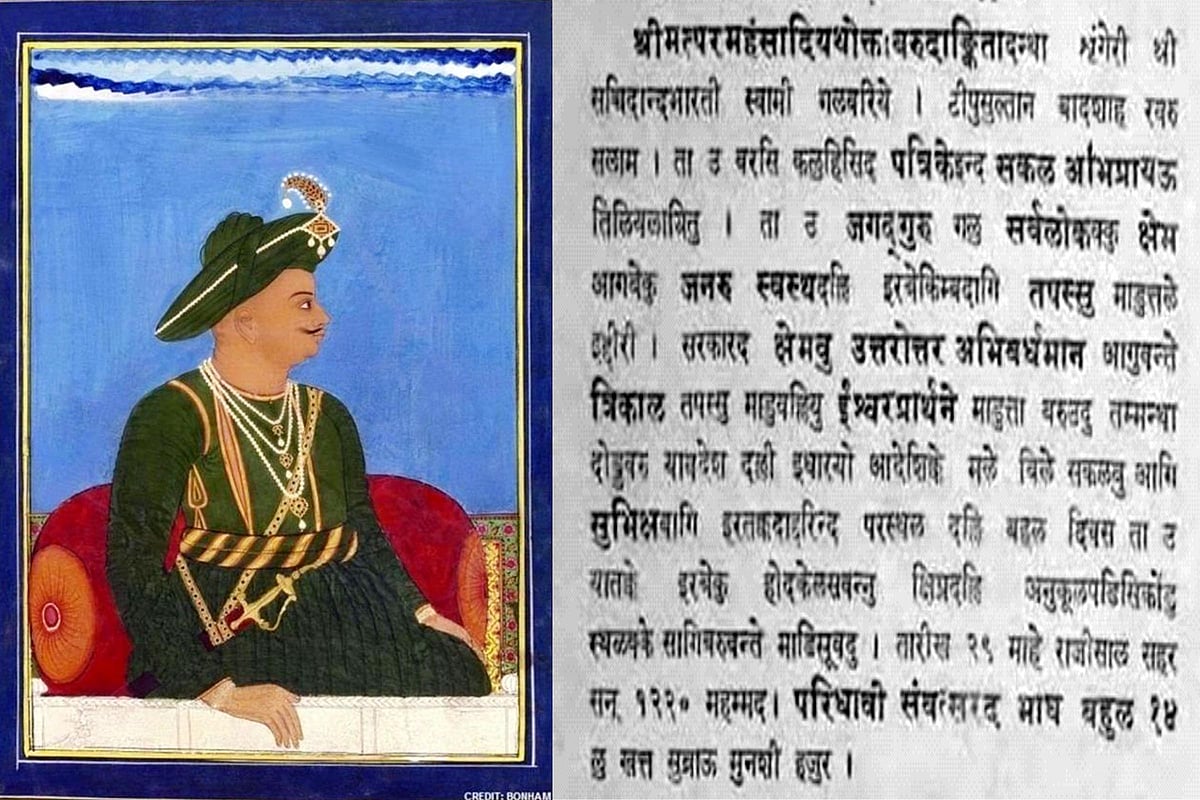 श्रीमत्परमहंसादियथोक्तबरुदाङ्कितादन्था श्रंगेरी श्री
सच्चिदान्दभारती स्वामी गलवरिये । टीपुसुल्तान बादशाह रवरु
सलाम । ता उ बरसि कलुहिसिद पत्रिकेइन्द सकल अभिप्रायऊ
तिलियलायितु । ता उ जगद्गुरु गलु सर्वलोकक्कु क्षेम
आगबेकु जनरु स्वस्थदल्लि इरबेकेम्बदागि तपस्सु माडुत्तले
इद्दीरी । सरकारद क्षेमवु उत्तरोत्तर अभिवर्धमान आगुवन्ते
त्रिकाल तपस्सु माडुवल्लियु ईश्वरप्रार्थने माडुत्ता बरुवदु तम्मन्था
दोड्डवरु यावदेश दल्ली इधारयो आदेशक्के मले बिले सकलवु आगि
सुभिक्षवागि इरतक्कदाद्दरिन्द परस्थल दल्लि बहल दिवस ता उ
यातक्के इरबेकु होदकेलसवन्नु क्षिप्रदल्लि अनुकूलपडिसिकोंडु
स्थलक्के सागिबरुवन्ते माडिसूवदु । तारीख २९ माहे राजीसाल सहर
सन् १२२० महम्मद। परिधावी संवत्सरद माघ बहुल १४
लु खत्त सुब्राऊ मुनशी हजुर ।
CREDIT: BONHAM